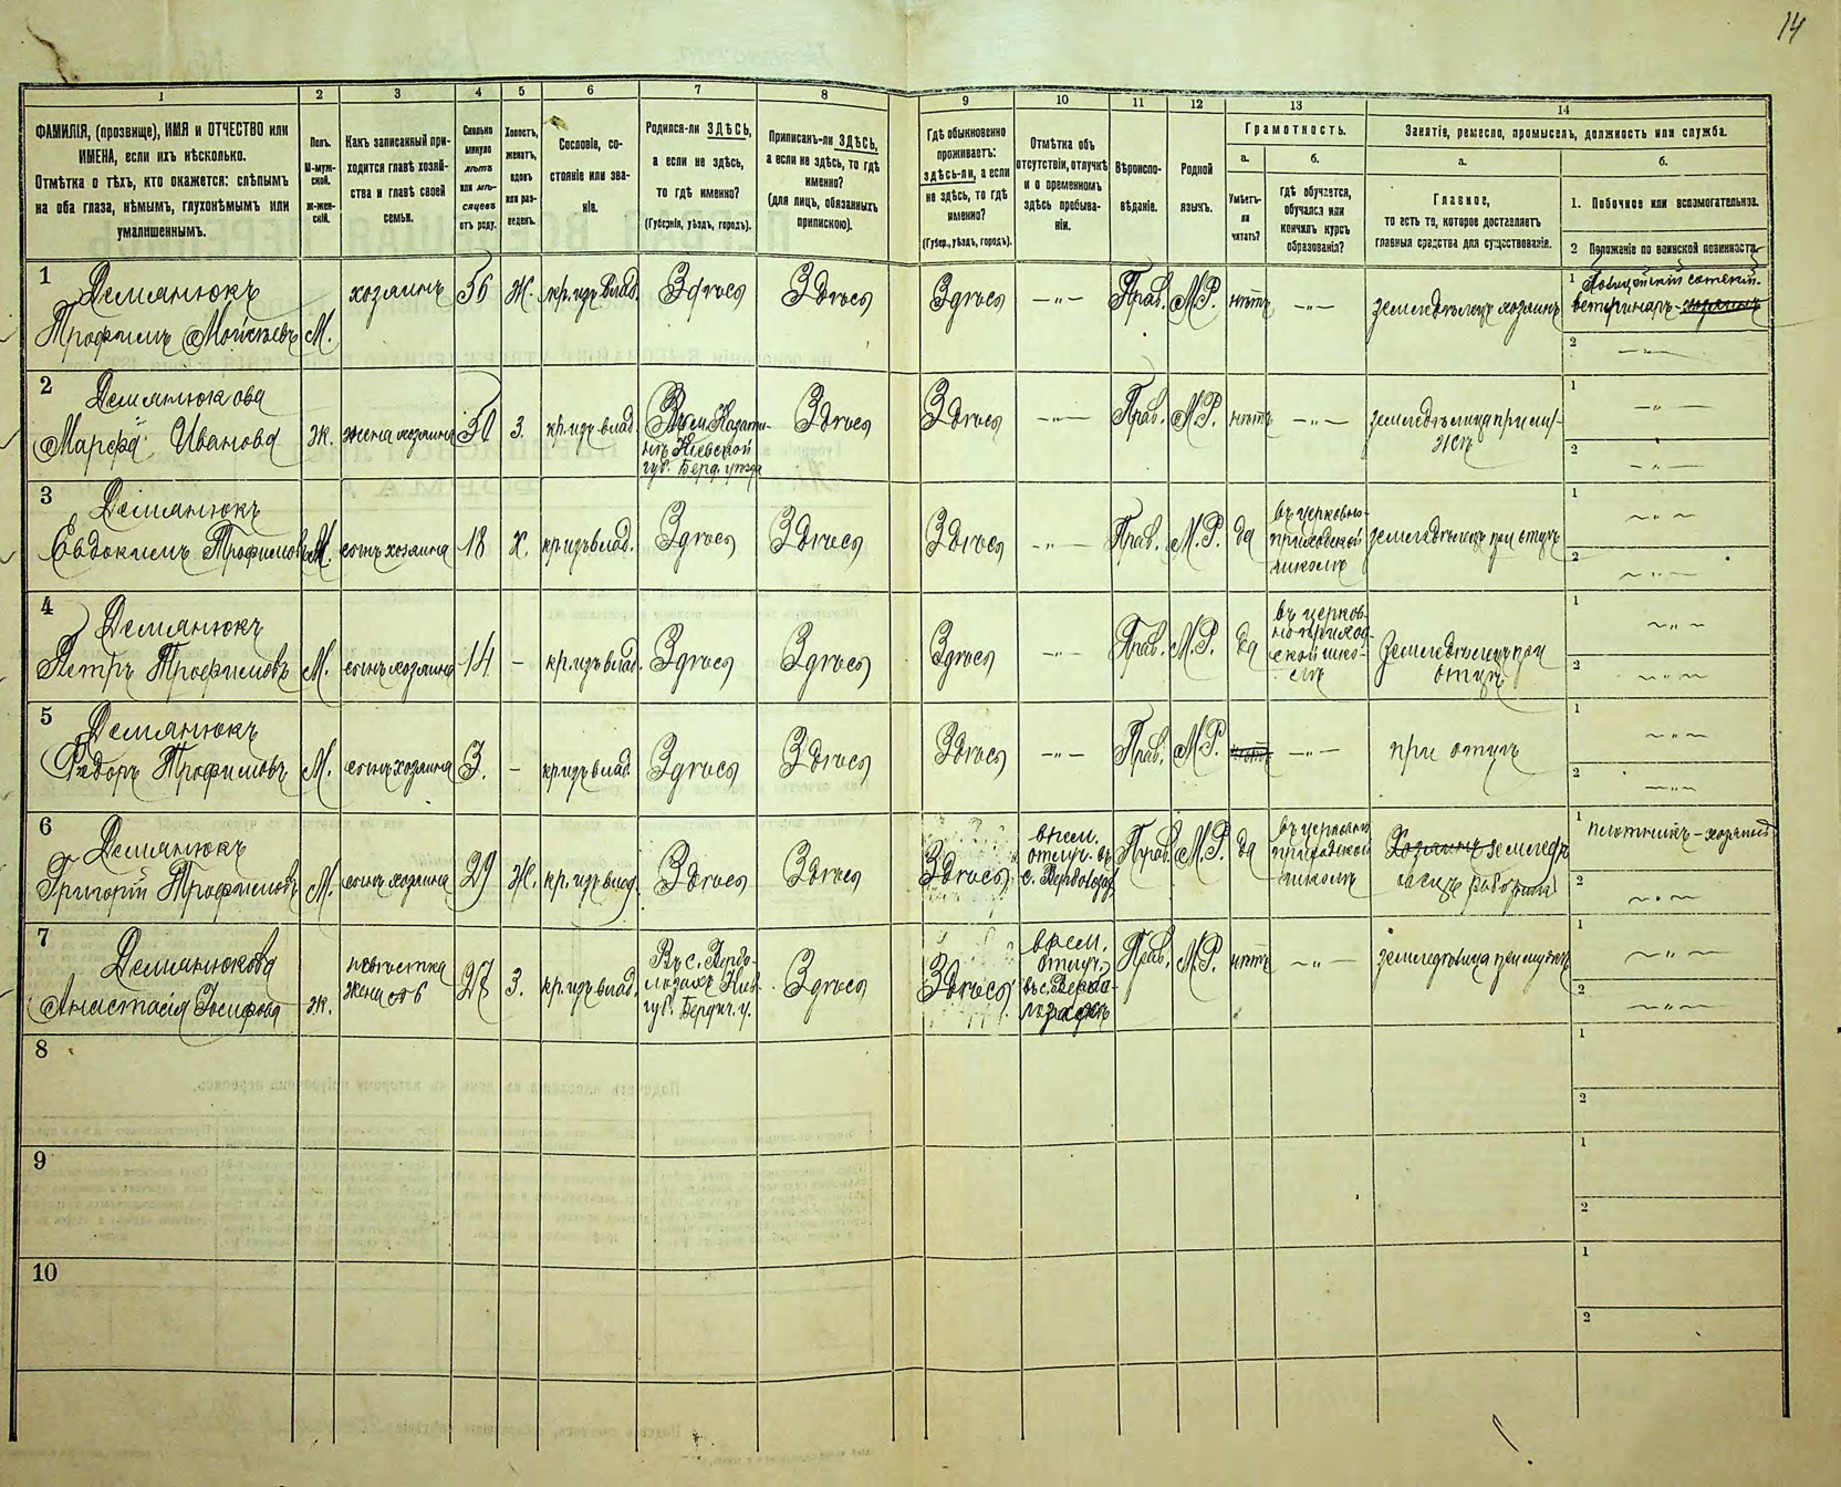 14
1
2
3
4
5
6
7
8
9
10
11
12
13
14
ФАМИЛІЯ, (прозвище), ИМЯ и ОТЧЕСТВО или
ИМЕНА, если ихъ нѣсколько.
Отмѣтка о тѣхъ, кто окажется: слѣпымъ
на оба глаза, нѣмымъ, глухонѣмымъ или
умалишеннымъ.
Полъ.
М-муж-
ской.
ж-жен-
скій.
Какъ записанный при-
ходится главѣ хозяй-
ства и главѣ своей
семьи.
Сколько
минуло
лѣтъ
или мѣ-
сяцевъ
отъ роду.
Холостъ,
женатъ,
вдовъ
или раз-
веденъ.
Сословіе, со-
стояніе или зва-
ніе.
Родился-ли ЗДѢСЬ,
а если не здѣсь,
то гдѣ именно?
(Губернія, уѣздъ, городъ).
Приписанъ-ли ЗДѢСЬ,
а если не здѣсь, то гдѣ
именно?
(для лицъ, обязанныхъ
припискою).
Гдѣ обыкновенно
проживаетъ:
здѣсь-ли, а если
не здѣсь, то гдѣ
именно?
(Губер., уѣздъ, городъ).
Отмѣтка объ
отсутствіи, отлучкѣ
и о временномъ
здѣсь пребыва-
ніи.
Вѣроиспо-
вѣданіе.
Родной
языкъ.
Грамотность.
а.
Умѣетъ-
ли
читать?
б.
гдѣ обучается,
обучался или
кончилъ курсъ
образованія?
Занятіе, ремесло, промыселъ, должность или служба.
а.
Главное,
то есть то, которое доставляетъ
главныя средства для существованія.
б.
1. Побочное или вспомогательное.
2 Положеніе по воинской повинности.
1
Демянюкъ
Трофимъ Мойсѣевъ
М.
хозяинъ
56
Ж.
кр. изъ влад.
Здѣсь
Здѣсь
Здѣсь
—"—
Прав.
М.Р.
нѣтъ
—"—
земледѣлецъ хозяинъ
1 Полицейскій сотскій.
ветеринаръ - хозяинъ
2 —"—
2
Демянюкова
Марфа Иванова
ж.
жена хозяина
50
З.
кр. изъ влад.
Въ м. Казати-
нѣ Кіевской
губ. Берд. уѣзда
Здѣсь
Здѣсь
—"—
Прав.
М.Р.
нѣтъ
—"—
земледѣлица при му-
жѣ
1 —"—
2 —"—
3
Демянюкъ
Евдокимъ Трофимовъ
М.
сынъ хозяина
18
Х.
кр. изъ влад.
Здѣсь
Здѣсь
Здѣсь
—"—
Прав.
М.Р.
да
въ церковно-
приходской
школѣ
земледѣлецъ при отцѣ
1 —"—
2 —"—
4
Демянюкъ
Петръ Трофимовъ
М.
сынъ хозяина
14
-
кр. изъ влад.
Здѣсь
Здѣсь
Здѣсь
—"—
Прав.
М.Р.
да
въ церков-
но приход-
ской шко-
лѣ
Земледѣлецъ при
отцѣ
1 —"—
2 —"—
5
Демянюкъ
Ѳедоръ Трофимовъ
М.
сынъ хозяина
3.
-
кр. изъ влад.
Здѣсь
Здѣсь
Здѣсь
—"—
Прав.
М.Р.
нѣтъ
—"—
при отцѣ
1 —"—
2 —"—
6
Демянюкъ
Григорій Трофимовъ
М.
сынъ хозяина
29
Ж.
кр. изъ влад.
Здѣсь
Здѣсь
Здѣсь
врем.
отлуч. въ
с.
Прав.
М.Р.
да
въ церковно
приходской
школѣ
Хозяинъ земледѣ
1 плотникъ - хозяинъ
2 —"—
7
Демянюкова
Анастасія Іосифова
ж.
невѣстка
жена 6
27
З.
кр. изъ влад.
Въ с.
Кіев.
губ. Бердич. у.
Здѣсь
Здѣсь
врем.
отлуч.
въ с.
Прав.
М.Р.
нѣтъ
—"—
земледѣлица при мужѣ
1 —"—
2 —"—
8
1
2
9
1
2
10
1
2